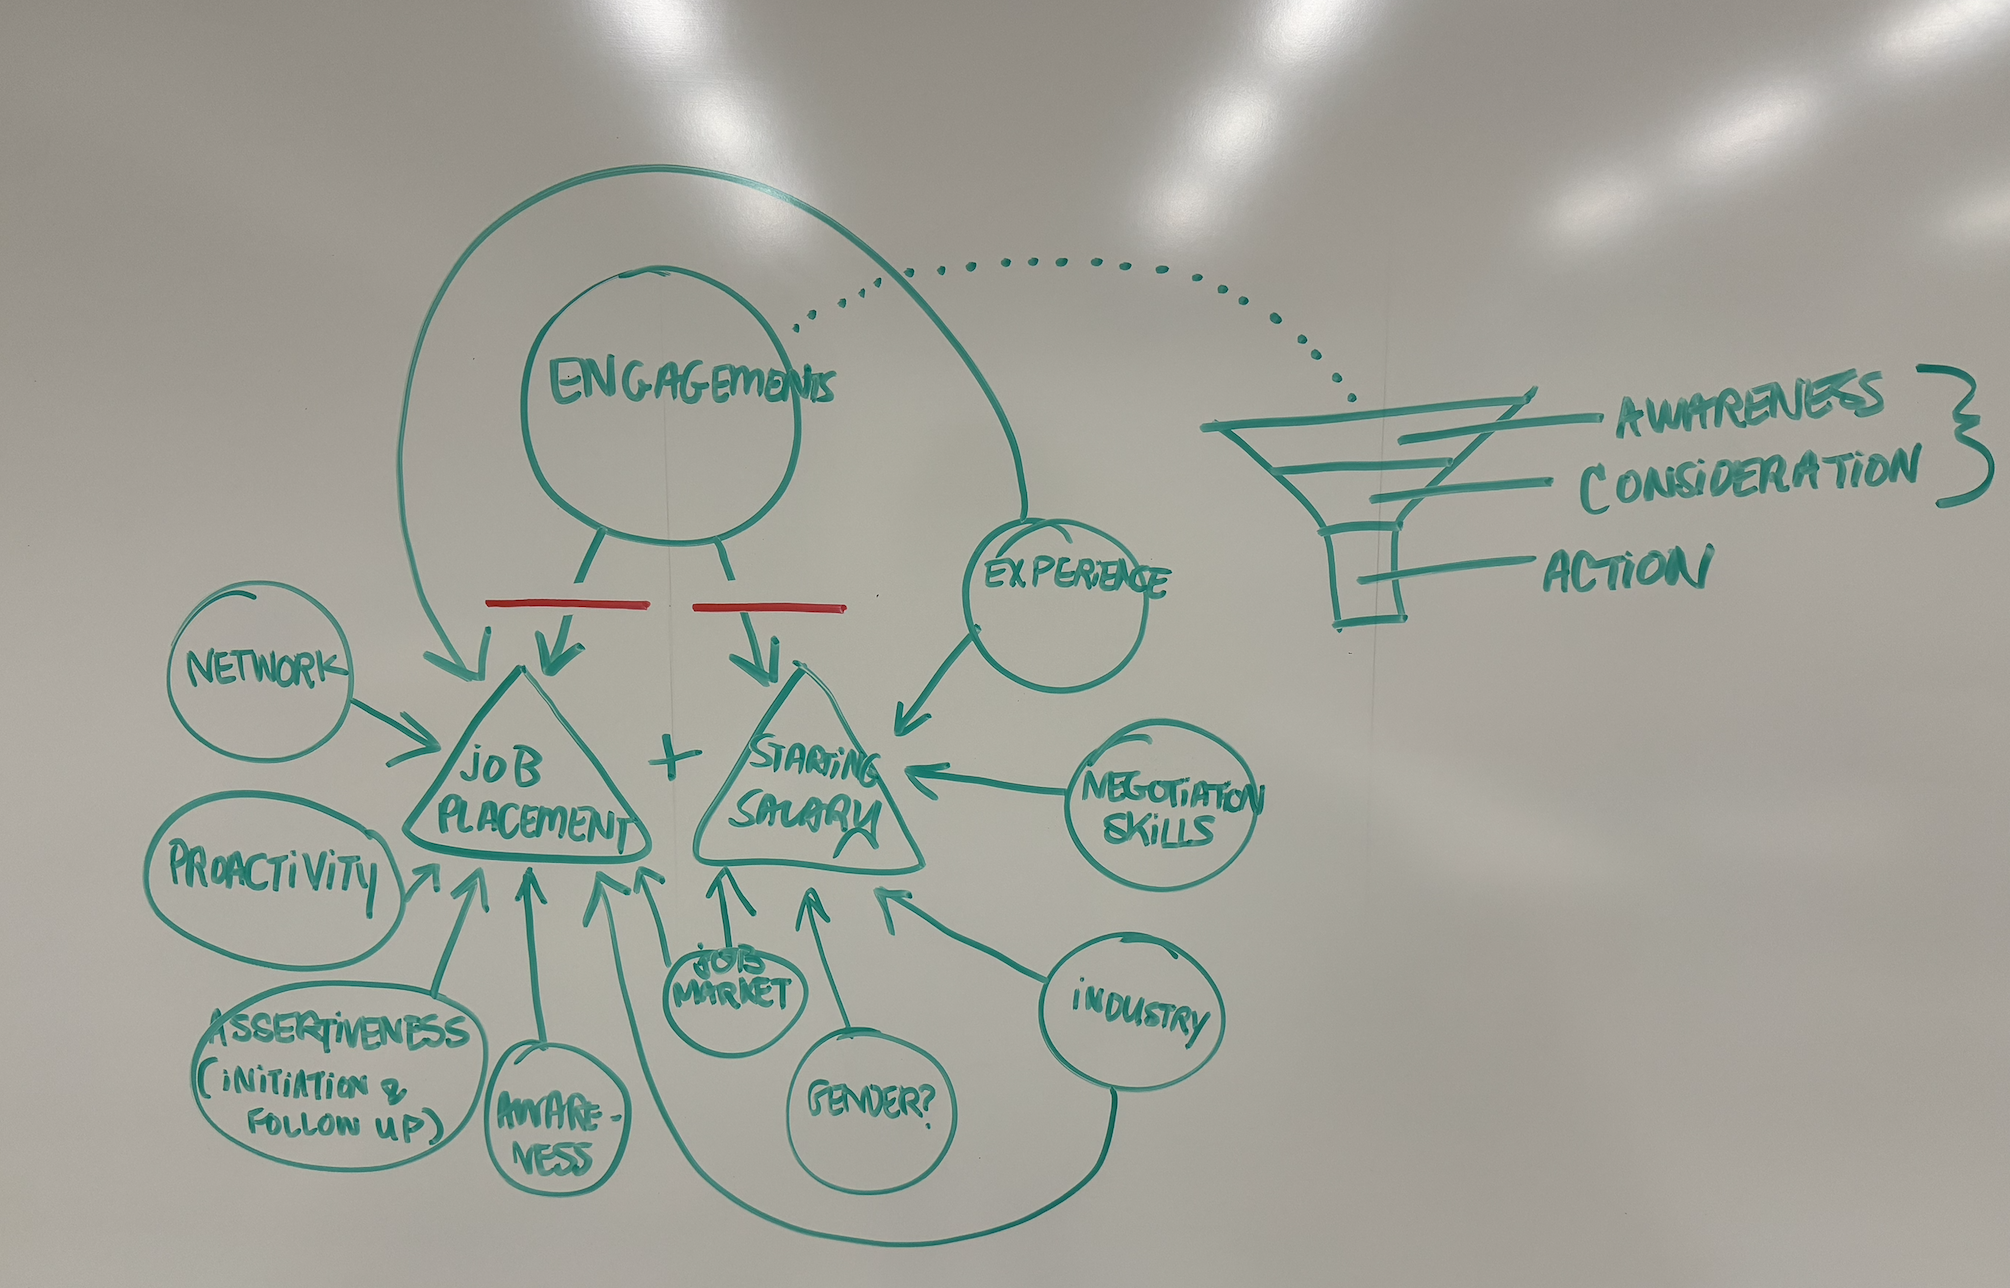 ENGAGEMENTS
AWARENESS
CONSIDERATION
ACTION
EXPERIENCE
NETWORK
JOB
PLACEMENT
+
STARTING
SALARY
NEGOTIATION
SKILLS
PROACTIVITY
JOB
MARKET
INDUSTRY
ASSERTIVENESS
(INITIATION &
FOLLOW UP)
AWARE-
NESS
GENDER?